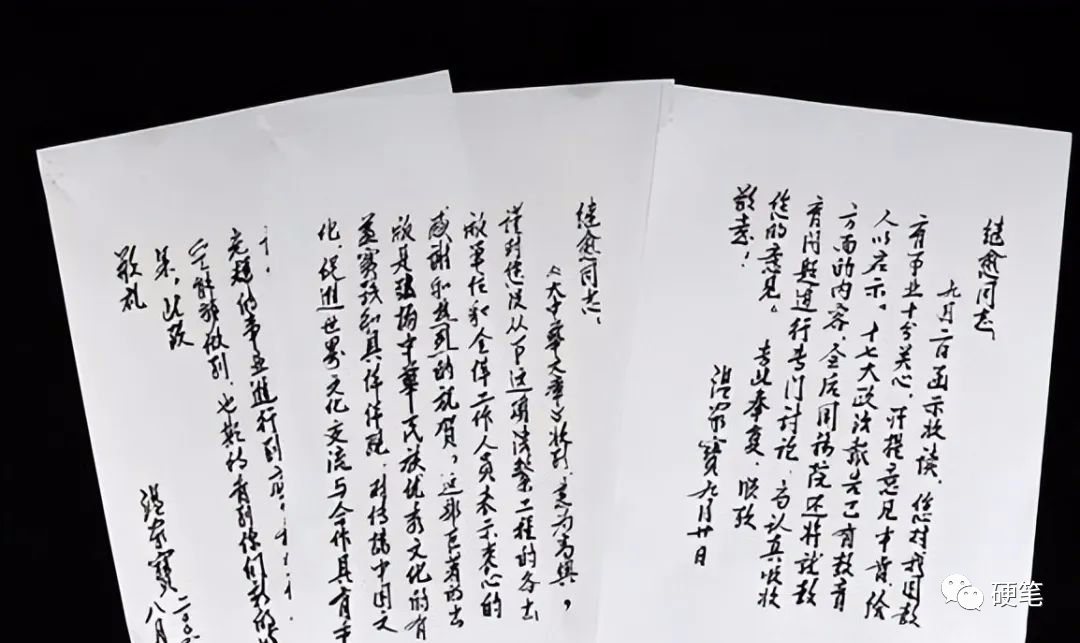 继愈同志：
九月二日函示收读。您对我国教
育事业十分关心，所提意见中肯，给
人以启示。十七大政治报告已有教育
方面的内容，会后国务院还将就教
育问题进行专门讨论，当认真吸收
您的意见。专此奉复，顺致
敬意！
温家宝 九月廿日
继愈同志：
《大中华文库》收到，甚为高兴，
谨对您及从事这项浩繁工程的各出
版单位和全体工作人员表示衷心的
感谢和热烈的祝贺。这部巨著的出
版是弘扬中华民族优秀文化的有
益实践和具体体现，对传播中国文
化，促进世界文化交流与合作具有重
的事业进行到底，
能够做到，也期
此致
敬礼
温家宝
八月
硬笔